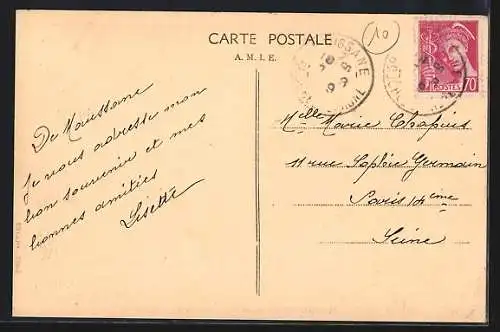 CARTE POSTALE
A. M. I. E.
10
POSTES 70
De Maussane
Je vous adresse mon
bon souvenir et mes
bonnes amitiés
Lisette
Melle Marie Chapius
11 rue Sophie Germain
Paris 14ème
Seine